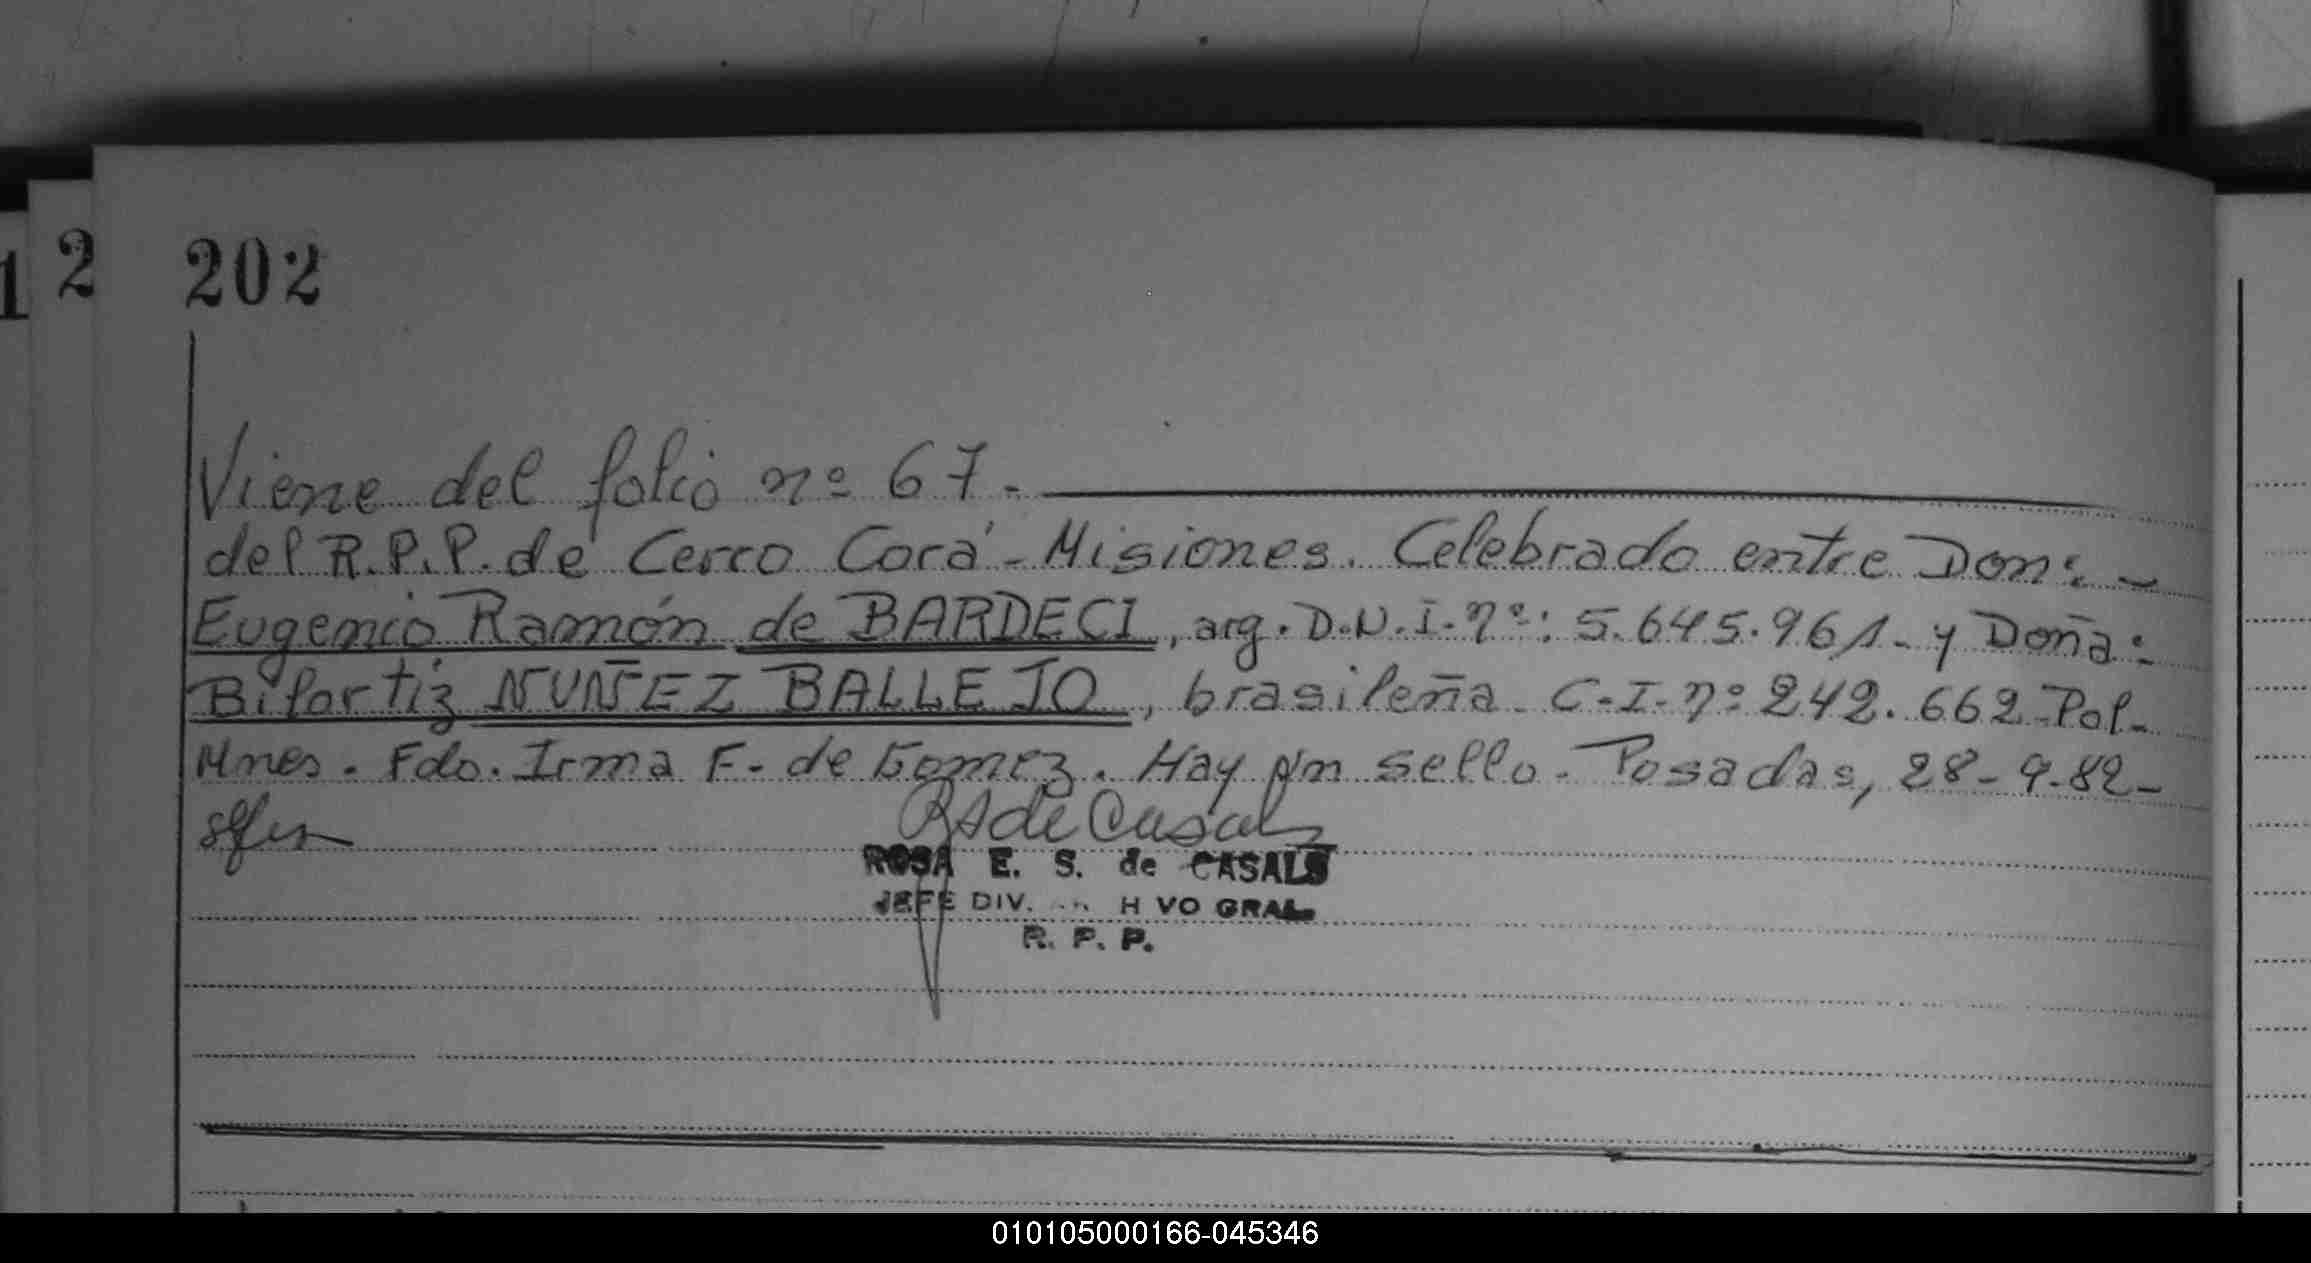 1
2
202
Viene del folio nº 67.
del R.P.P. de Cerco Corá - Misiones. Celebrado entre Don: -
Eugenio Ramón de BARDECI, arg. D.N.I. nº: 5.645.961 - y Doña:
Bilortiz NUÑEZ BALLEJO, brasileña. C.I. nº 242.662 - Pol-
Mnes. Fdo. Irma F. de Gomez. Hay un sello. Posadas, 28-9-82-
RS de Casals
ROSA E. S. de CASALS
JEFE DIV. H VO GRAL.
R. P. P.
010105000166-045346